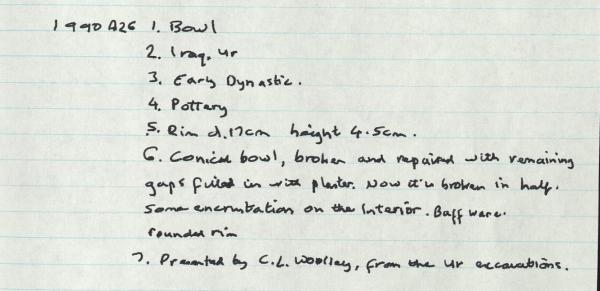 1990 A26 1. Bowl
2. Iraq, Ur
3. Early Dynastic.
4. Pottery
5. Rim d.17cm height 4.5cm.
6. Conical bowl, broken and repaired with remaining
gaps filled in with plaster. Now it is broken in half.
Some encrustation on the interior. Buff ware.
rounded rim
7. Presented by C.L. Woolley, from the Ur excavations.